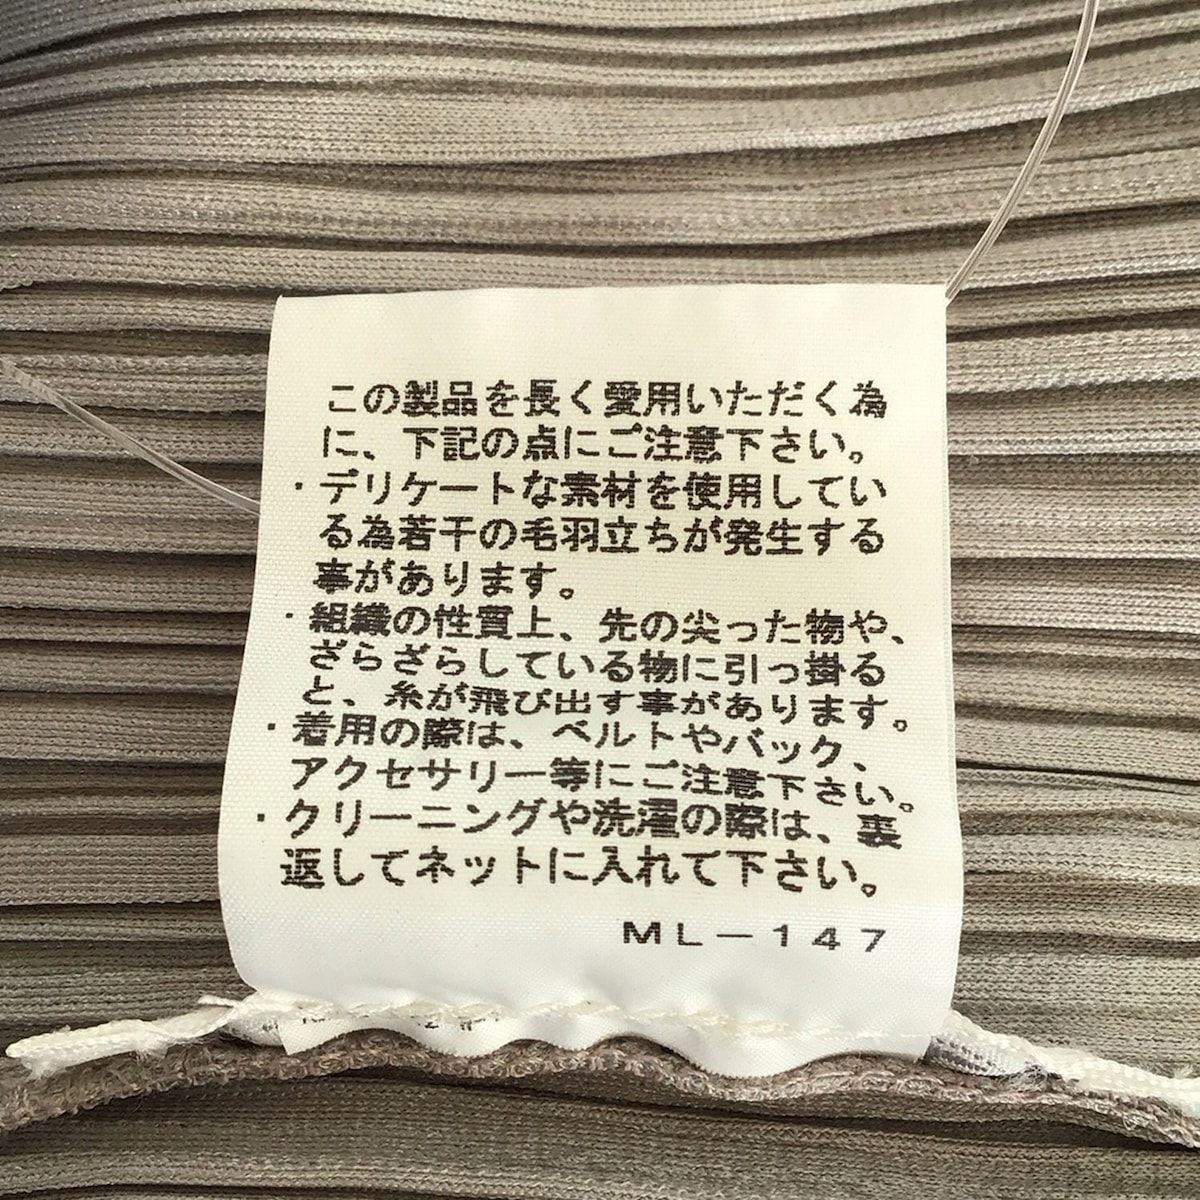 この製品を長く愛用いただく為
に、下記の点にご注意下さい。
・デリケートな素材を使用してい
る為若干の毛羽立ちが発生する
事があります。
・組織の性質上、先の尖った物や、
ざらざらしている物に引っ掛る
と、糸が飛び出す事があります。
・着用の際は、ベルトやバック、
アクセサリー等にご注意下さい。
・クリーニングや洗濯の際は、裏
返してネットに入れて下さい。
ML-147